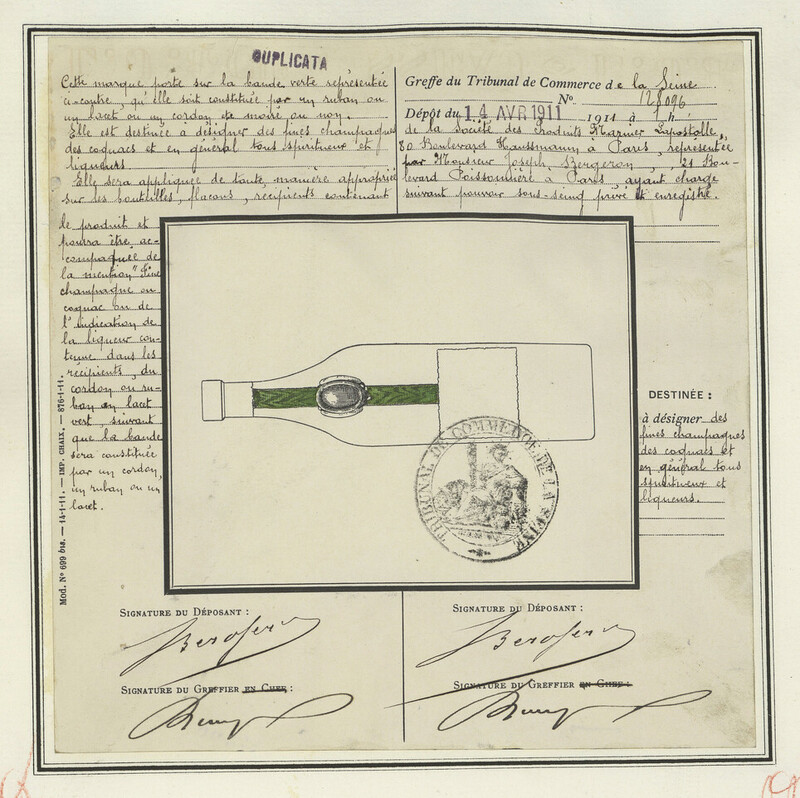 DUPLICATA
Cette marque porte sur la bande verte représentée
ci-contre, qu'elle soit constituée par un ruban ou
un lacet ou un cordon et moiré ou non.
Elle est destinée à désigner des fines champagnes
des cognacs et en général tous spiritueux et
liqueurs.
Elle sera appliquée de toute manière appropriée
sur les bouteilles, flacons, récipients contenant
le produit et
pourra être ac-
compagnée de
la mention "Fine
champagne ou
cognac ou de
l'indication de
la liqueur con-
tenue dans les
récipients, du
cordon ou ru-
ban ou lacet
vert, suivant
que la bande
sera constituée
par un cordon,
un ruban ou un
lacet.
Mod. N° 699 bis. — 14-1-11. — IMP. CHAIX. — 876-1-11.
Greffe du Tribunal de Commerce de la Seine
N° 128096
Dépôt du 14 AVR 1911 1911 à 1 h
de la Société des Produits Marnier Lapostolle,
80 Boulevard Haussmann à Paris, représentée
par Monsieur Joseph Bergeron, 21 Bou-
levard Poissonnière à Paris, ayant charge
suivant pouvoir sous-seing privé et enregistré.
TRIBUNAL DE COMMERCE DE LA SEINE
DESTINÉE :
à désigner des
fines champagnes
des cognacs et
en général tous
spiritueux et
liqueurs.
SIGNATURE DU DÉPOSANT :
SIGNATURE DU GREFFIER EN CHEF :
SIGNATURE DU DÉPOSANT :
SIGNATURE DU GREFFIER EN CHEF :